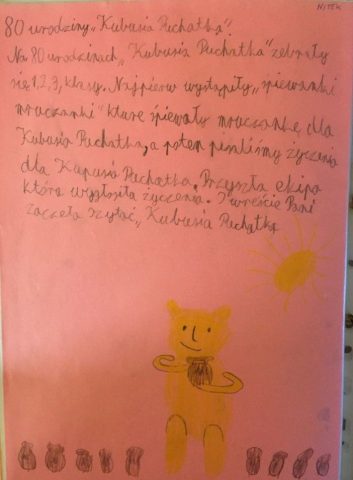 NITEK
80 urodziny „Kubusia Puchatka".
Na 80 urodzinach „Kubusia Puchatka" zebrały
się 1, 2, 3, klasy. Najpierw wystąpiły „śpiewanki
mruczanki" które śpiewały mruczankę dla
Kubusia Puchatka, a potem pisaliśmy życzenia
dla Kupusia Puchatka. Przyszła ekipa
która wygłosiła życzenia. I wreście Pani
zaczeła czytać „Kubusia Puchatka